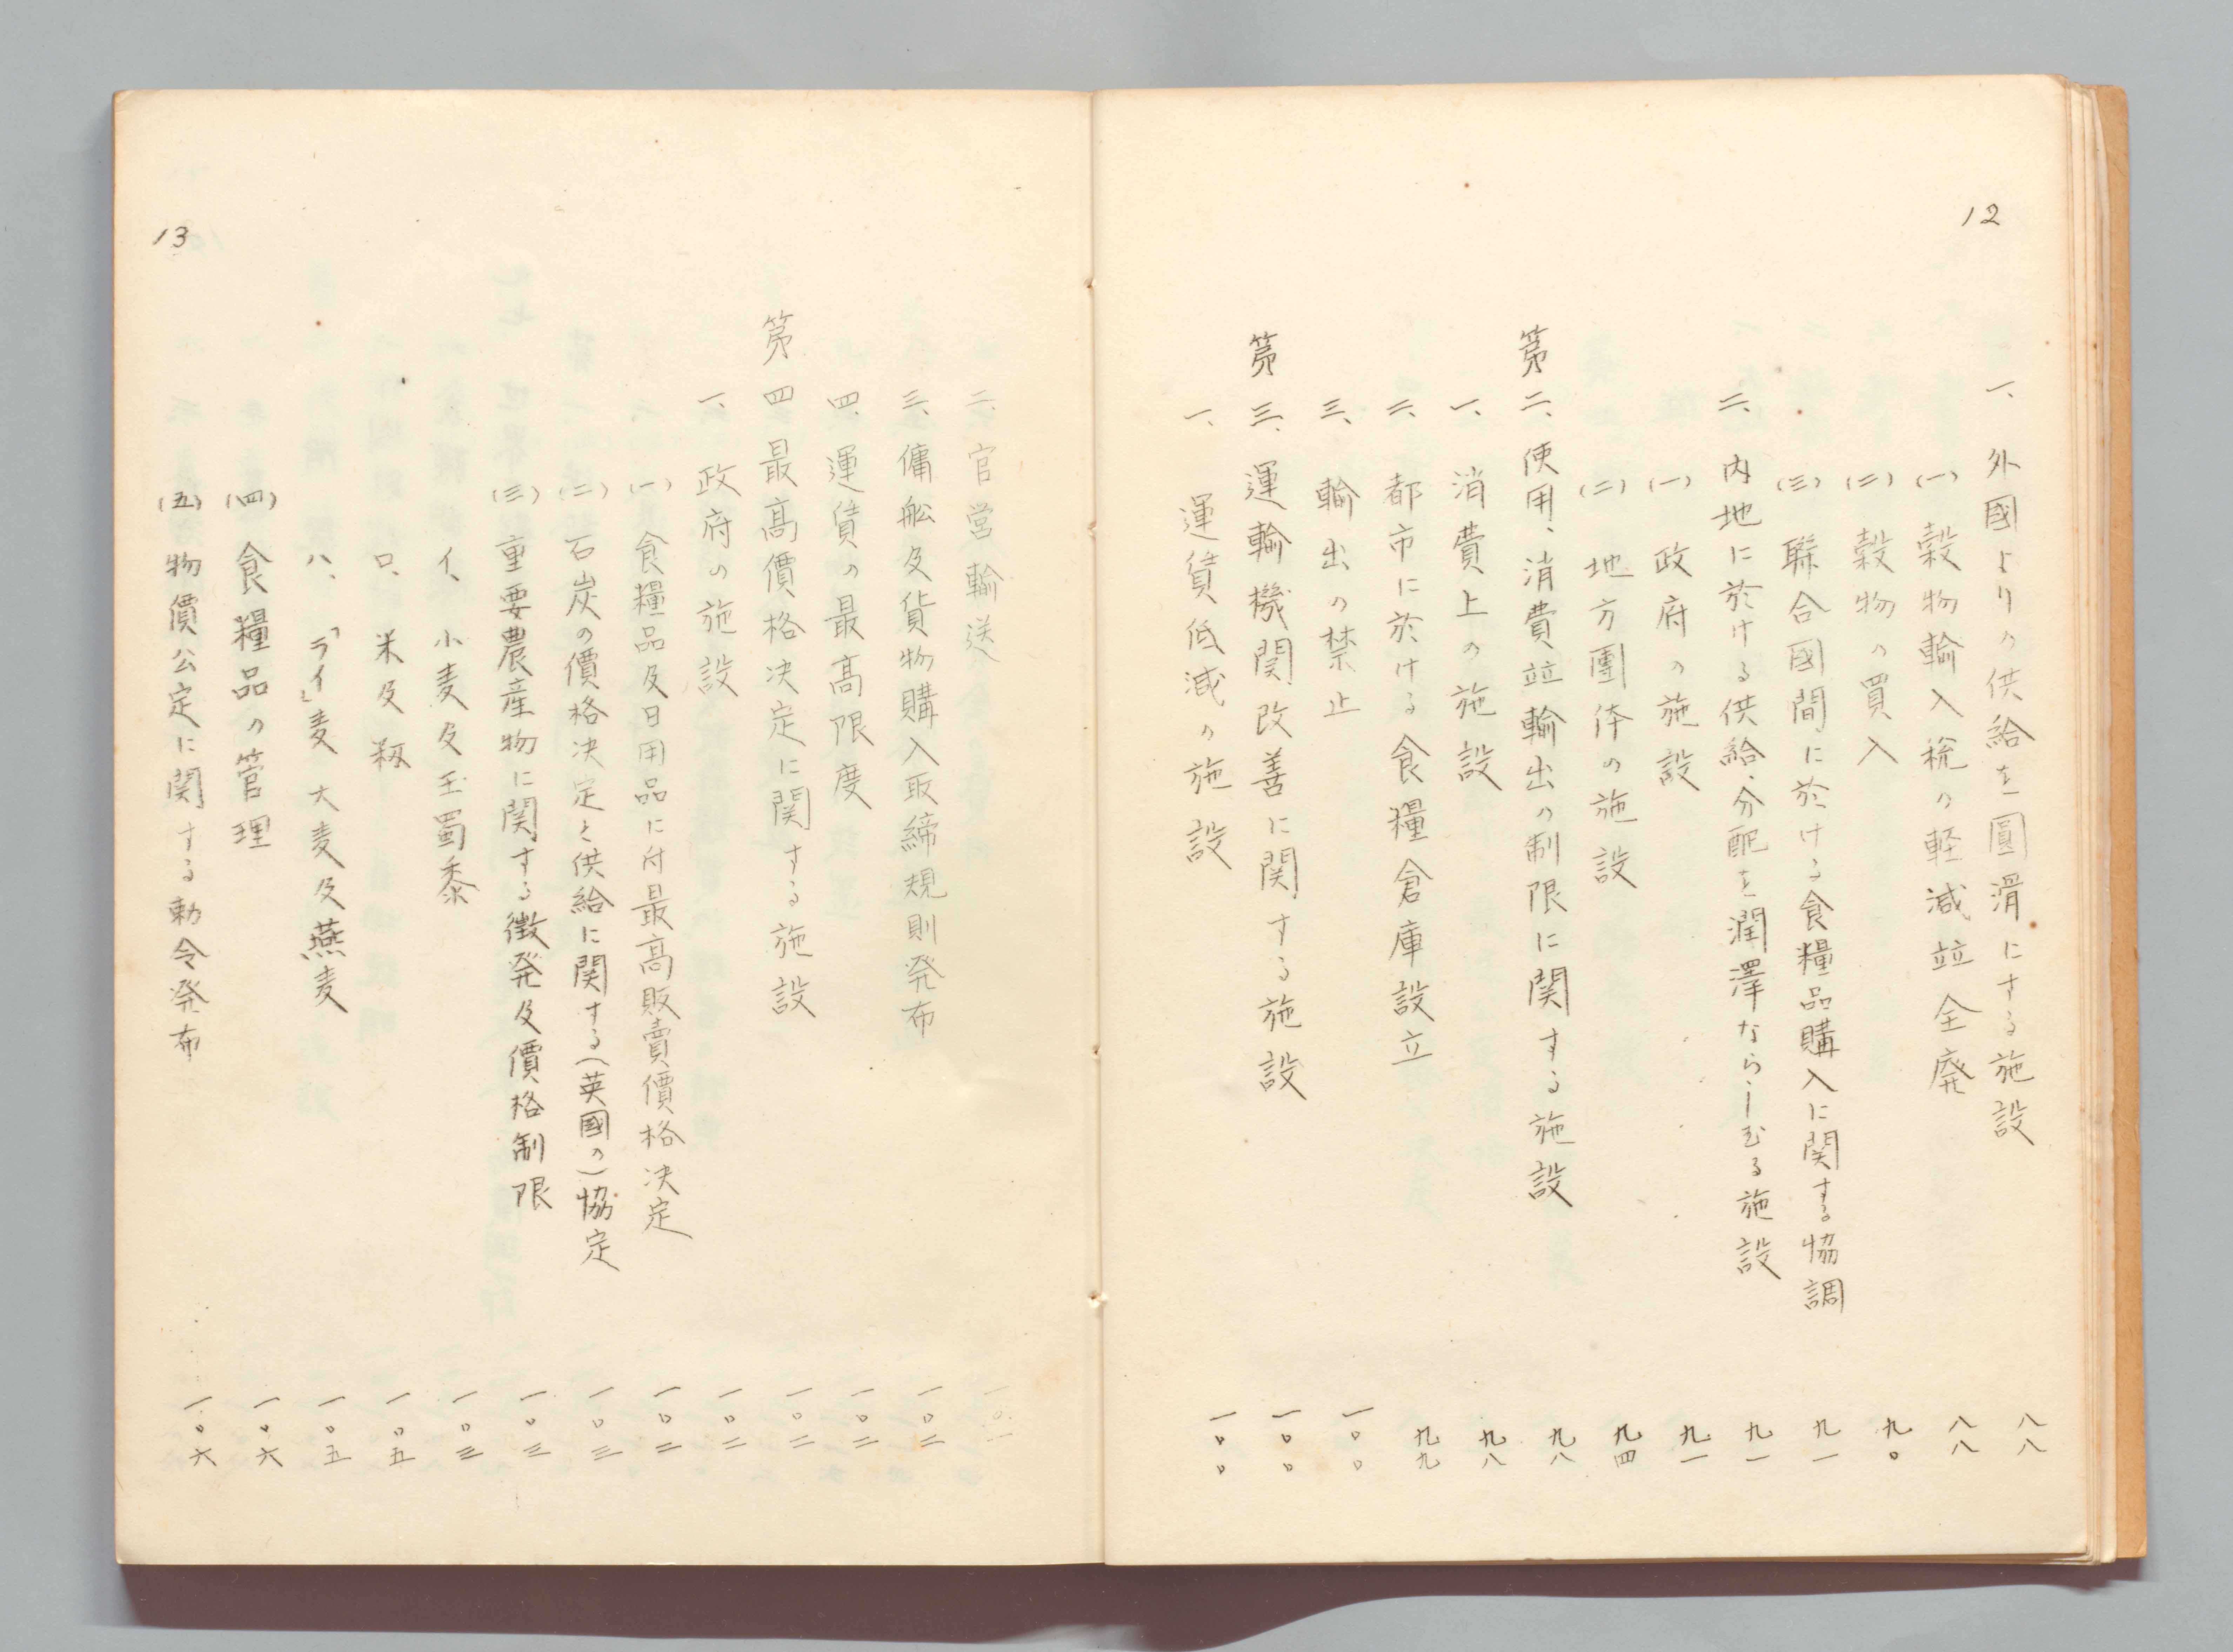 12
一、外國よりの供給を圓滑にする施設 八八
(一) 穀物輸入税の軽減並全廃 八八
(二) 穀物の買入 九〇
(三) 聯合國間に於ける食糧品購入に関する協調 九一
二、内地に於ける供給、分配を潤澤ならしむる施設 九一
(一) 政府の施設 九一
(二) 地方團体の施設 九四
第二、使用、消費並輸出の制限に関する施設 九八
一、消費上の施設 九八
二、都市に於ける食糧倉庫設立 九九
三、輸出の禁止 一〇〇
第三、運輸機関改善に関する施設 一〇〇
一、運賃低減の施設 一〇〇
13
二、官営輸送 一〇一
三、傭舩及貨物購入取締規則発布 一〇二
四、運賃の最髙限度 一〇二
第四 最髙價格决定に関する施設 一〇二
一、政府の施設 一〇二
(一) 食糧品及日用品に付最髙販賣價格决定 一〇二
(二) 石炭の價格决定と供給に関する(英國の)協定 一〇三
(三) 重要農産物に関する徴発及價格制限 一〇三
イ、小麦及玉蜀黍 一〇三
ロ、米及籾 一〇五
ハ、「ライ」麦 大麦及燕麦 一〇五
(四) 食糧品の管理 一〇六
(五) 物價公定に関する勅令発布 一〇六